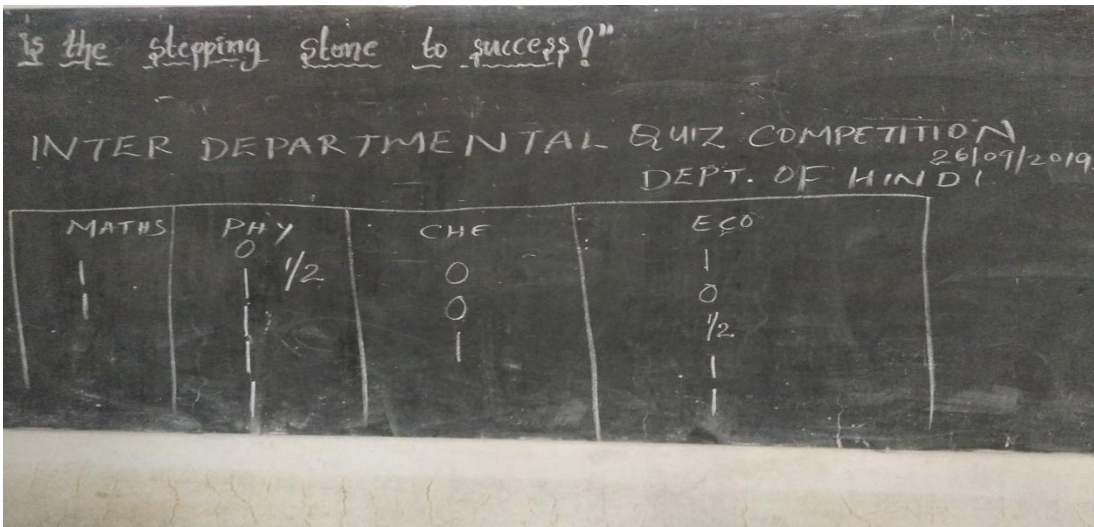 is the stepping stone to success!"
INTER DEPARTMENTAL QUIZ COMPETITION
26/09/2019
DEPT. OF HINDI
MATHS PHY CHE ECO
0
1 1 1/2 0 1
1 1 0 0
1 1 1/2
1 1
1